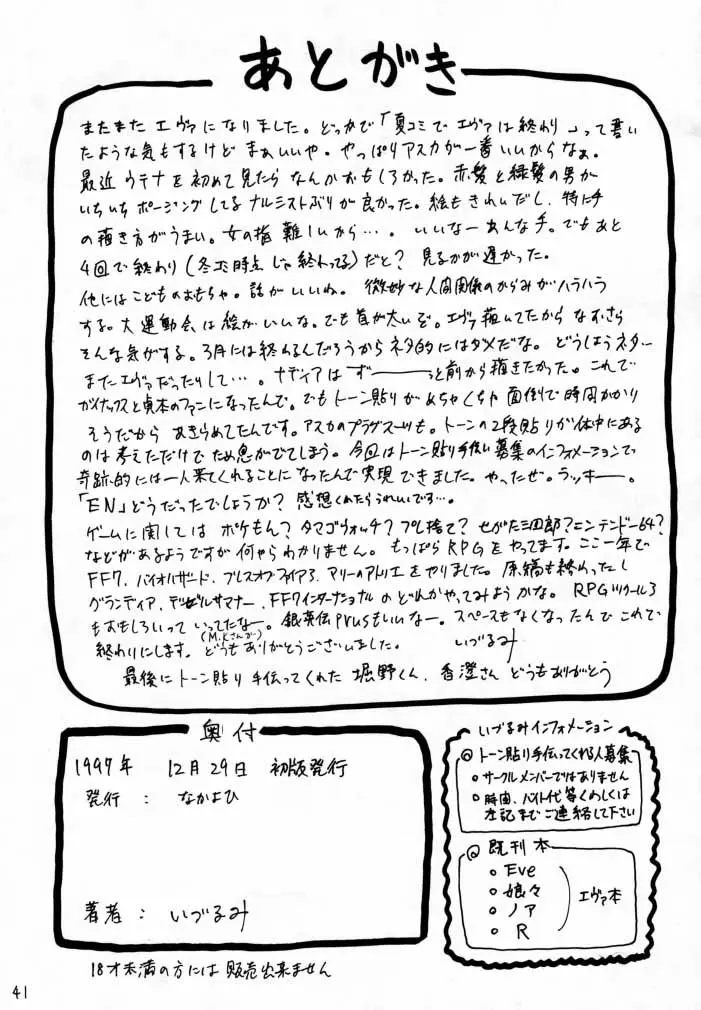 あとがき
またまた エヴァになりました。どっかで「夏コミで エヴァは終わり」って書い
たような気もするけど まぁいいや。やっぱりアスカが一番いいからなぁ。
最近 ウテナを初めて見たら なんかおもしろかった。赤髪と緑髪の男が
いちいち ポージングしてる ナルシストぶりが良かった。絵もきれいだし、特に手
の描き方がうまい。女の指 難しいから…。いいなーあんな手。でもあと
4回で終わり(冬コミ時点じゃ終わってる)だと? 見るのが遅かった。
他にはこどものおもちゃ。話がいいね。 微妙な人間関係のからみがハラハラ
する。大運動会は絵がいいな。でも首が太いぞ。エヴァ描いてたからなおさら
そんな気がする。3月には終わるんだろうからネタ的にはダメだな。どうしようネター
またエヴァだったりして…。ナディアは ずーーーっと前から描きたかった。これで
ガイナックスと貞本のファンになったんで。でもトーン貼りがめちゃくちゃ 面倒で時間かかり
そうだから あきらめてたんです。アスカのプラグスーツも。トーンの2段貼りが体中にある
のは考えただけでため息がでてしまう。今回はトーン貼り手伝い募集のインフォメーションで
奇跡的には一人来てくれることになったんで実現できました。やったぜ。ラッキー。
「EN」どうだったでしょうか? 感想くれたらうれしいです…。
ゲームに関しては ポケもん? タマゴウォッチ? プレ捨て? せがた三四郎?ニンテンドー64?
などがあるようですが何やらわかりません。もっぱらRPGをやってます。ここ一年で
FF7、バイオハザード、ブレスオブファイア3、マリーのアトリエをやりました。原稿も終わったし
グランディア、デビルサマナー、FF7インターナショナルのどれかやってみようかな。RPGツクール3
もおもしろいって いってたなー。銀英伝prusもいいなー。スペースもなくなったんで これで
(M.Kさんが)
終わりにします。どうもありがとうございました。 いづるみ
最後にトーン貼り手伝ってくれた 堀野くん、香澄さん どうもありがとう
奥付
1997年 12月29日 初版発行
発行 : なかよひ
著者 : いづるみ
いづるみインフォメーション
◎トーン貼り手伝ってくれる人募集
○サークルメンバーではありません
○時間、バイト代等くわしくは
左記までご連絡して下さい
◎既刊本
○Eve
○娘々
○ノア
○R
エヴァ本
18才未満の方には 販売出来ません
41